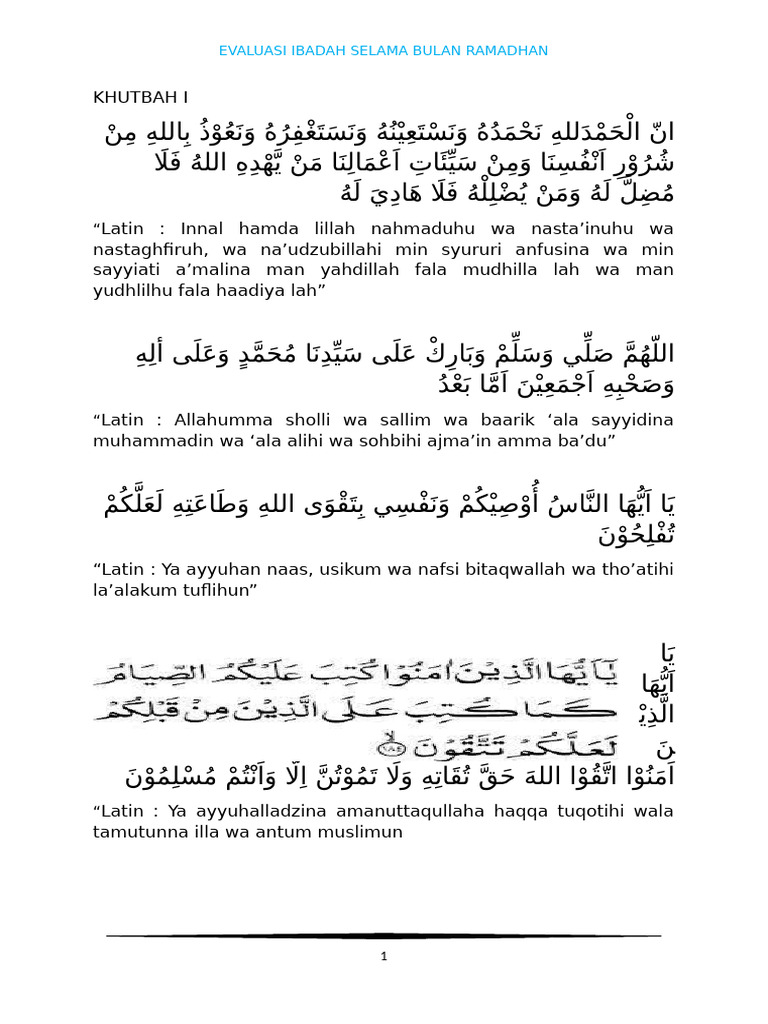 EVALUASI IBADAH SELAMA BULAN RAMADHAN
KHUTBAH I
انّ الْحَمْدَللهِ نَحْمَدُهُ وَنَسْتَعِيْنُهُ وَنَسَتَغْفِرُهُ وَنَعُوْذُ بِاللهِ مِنْ
شُرُوْرِ اَنْفُسِنَا وَمِنْ سَيِّئَاتِ اَعْمَالِنَا مَنْ يَّهْدِهِ اللهُ فَلَا
مُضِلَّ لَهُ وَمَنْ يُضْلِلْهُ فَلَا هَادِيَ لَهُ
“Latin : Innal hamda lillah nahmaduhu wa nasta’inuhu wa
nastaghfiruh, wa na’udzubillahi min syururi anfusina wa min
sayyiati a’malina man yahdillah fala mudhilla lah wa man
yudhlilhu fala haadiya lah”
اللّهُمَّ صَلِّي وَسَلِّمْ وَبَارِكْ عَلَى سَيِّدِنَا مُحَمَّدٍ وَعَلَى ألِهِ
وَصَحْبِهِ اَجْمَعِيْنَ اَمَّا بَعْدُ
“Latin : Allahumma sholli wa sallim wa baarik ‘ala sayyidina
muhammadin wa ‘ala alihi wa sohbihi ajma’in amma ba’du”
يَا اَيُّهَا النَّاسُ أُوْصِيْكُمْ وَنَفْسِي بِتَقْوَى اللهِ وَطَاعَتِهِ لَعَلَّكُمْ
تُفْلِحُوْنَ
“Latin : Ya ayyuhan naas, usikum wa nafsi bitaqwallah wa tho’atihi
la’alakum tuflihun”
يَا
اَيُّهَا
الَّذِيْ
نَ
يٰٓاَيُّهَا الَّذِيْنَ اٰمَنُوْا كُتِبَ عَلَيْكُمُ الصِّيَامُ
كَمَا كُتِبَ عَلَى الَّذِيْنَ مِنْ قَبْلِكُمْ
لَعَلَّكُمْ تَتَّقُوْنَ ۙ ١٨٤
اَمَنُوْا اتَّقُوْا اللهَ حَقَّ تُقَاتِهِ وَلَا تَمُوْتُنَّ اِلّا وَاَنْتُمْ مُسْلِمُوْنَ
“Latin : Ya ayyuhalladzina amanuttaqullaha haqqa tuqotihi wala
tamutunna illa wa antum muslimun
1